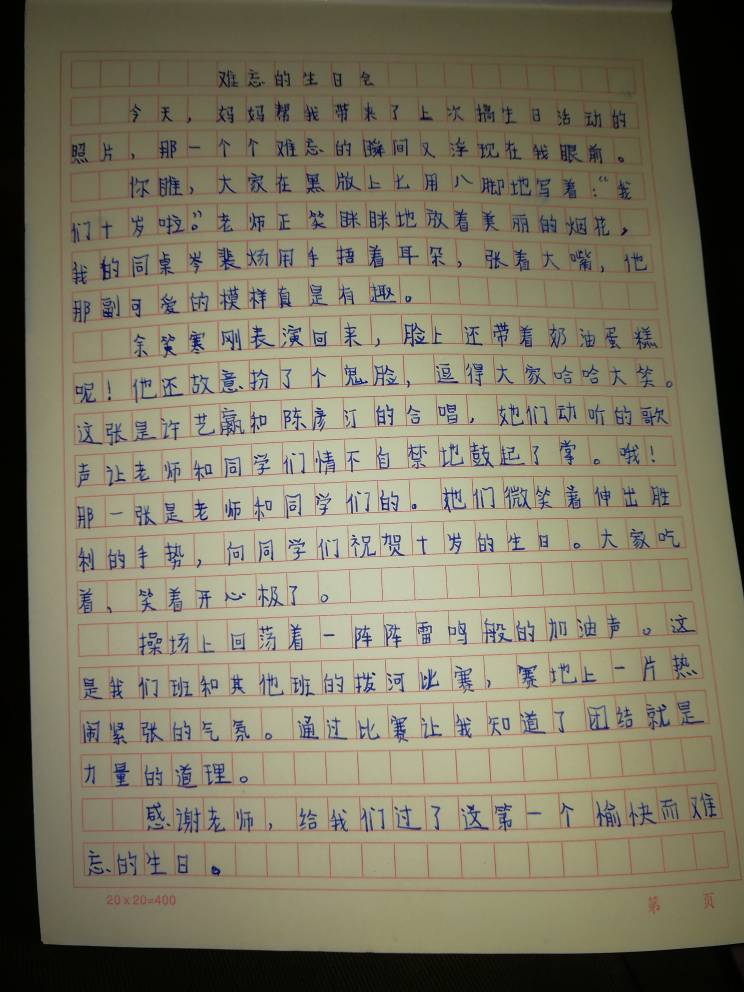 难忘的生日会
今天，妈妈帮我带来了上次搞生日活动的
照片，那一个个难忘的瞬间又浮现在我眼前。
你瞧，大家在黑版上七用八脚地写着：“我
们十岁啦。”老师正笑眯眯地放着美丽的烟花，
我的同桌岑裴炀用手捂着耳朵，张着大嘴，他
那副可爱的模样真是有趣。
余笑寒刚表演回来，脸上还带着奶油蛋糕
呢！他还故意扮了个鬼脸，逗得大家哈哈大笑。
这张是许艺瀛和陈彦汀的合唱，她们动听的歌
声让老师和同学们情不自禁地鼓起了掌。哦！
那一张是老师和同学们的。她们微笑着伸出胜
利的手势，向同学们祝贺十岁的生日。大家吃
着、笑着开心极了。
操场上回荡着一阵阵雷鸣般的加油声。这
是我们班和其他班的拨河比赛，赛地上一片热
闹紧张的气氛。通过比赛让我知道了团结就是
力量的道理。
感谢老师，给我们过了这第一个愉快而难
忘的生日。
20×20=400
第 页